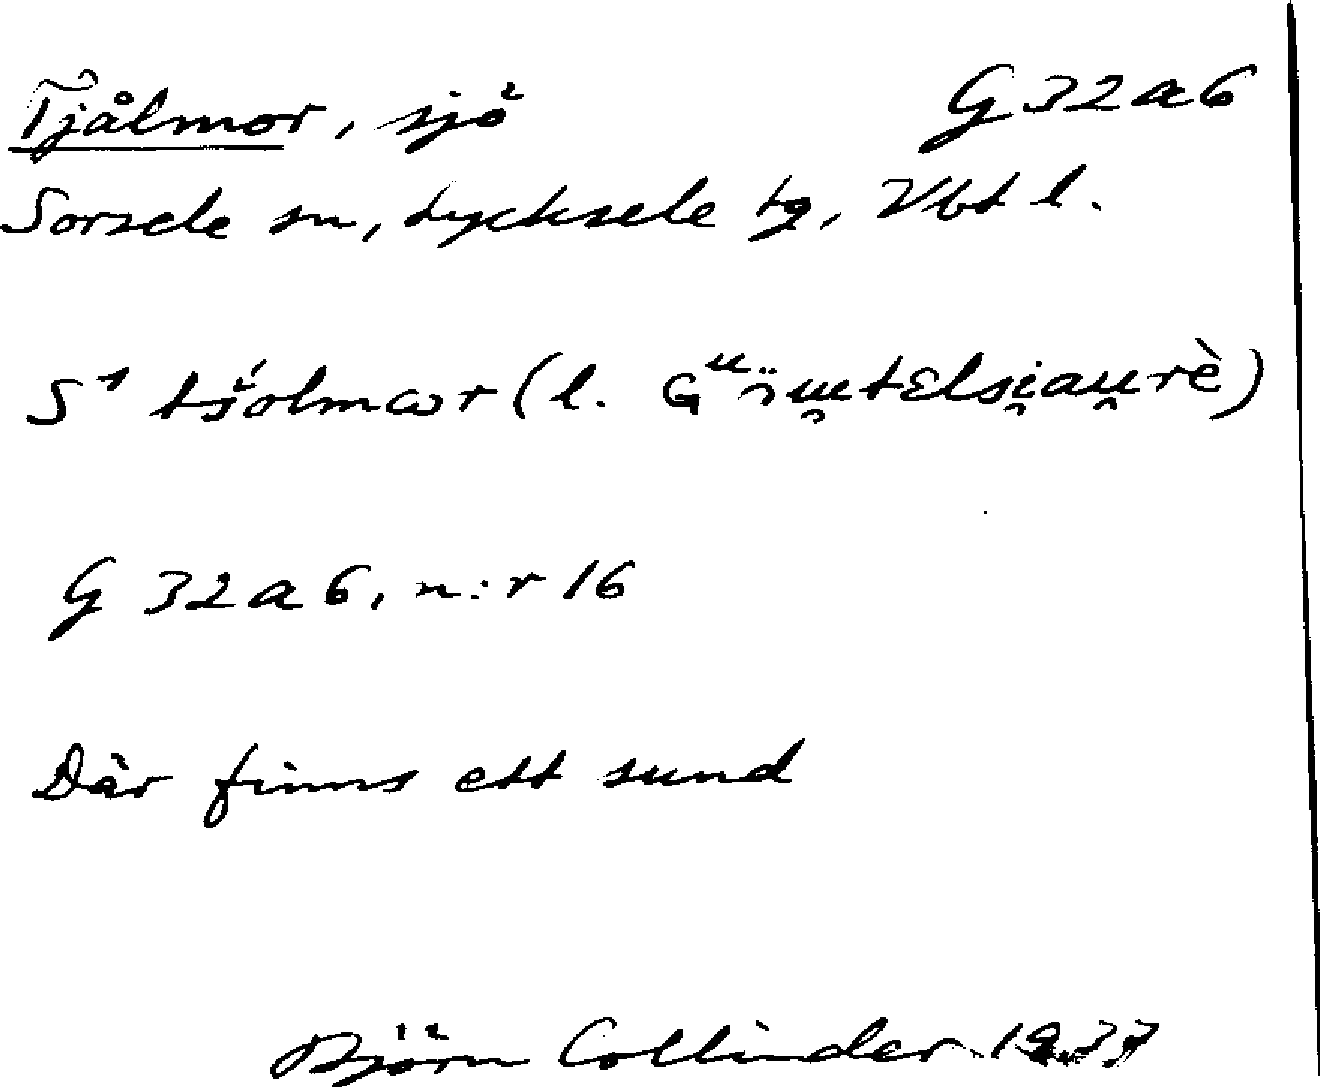 Tjålmor, sjö G 32 a 6
Sorsele sn, Lycksele tg, Vbt l.
S¹ tšólmɷr (l.
G 32 a 6, n:r 16
Där finns ett sund
Björn Collinder 1937